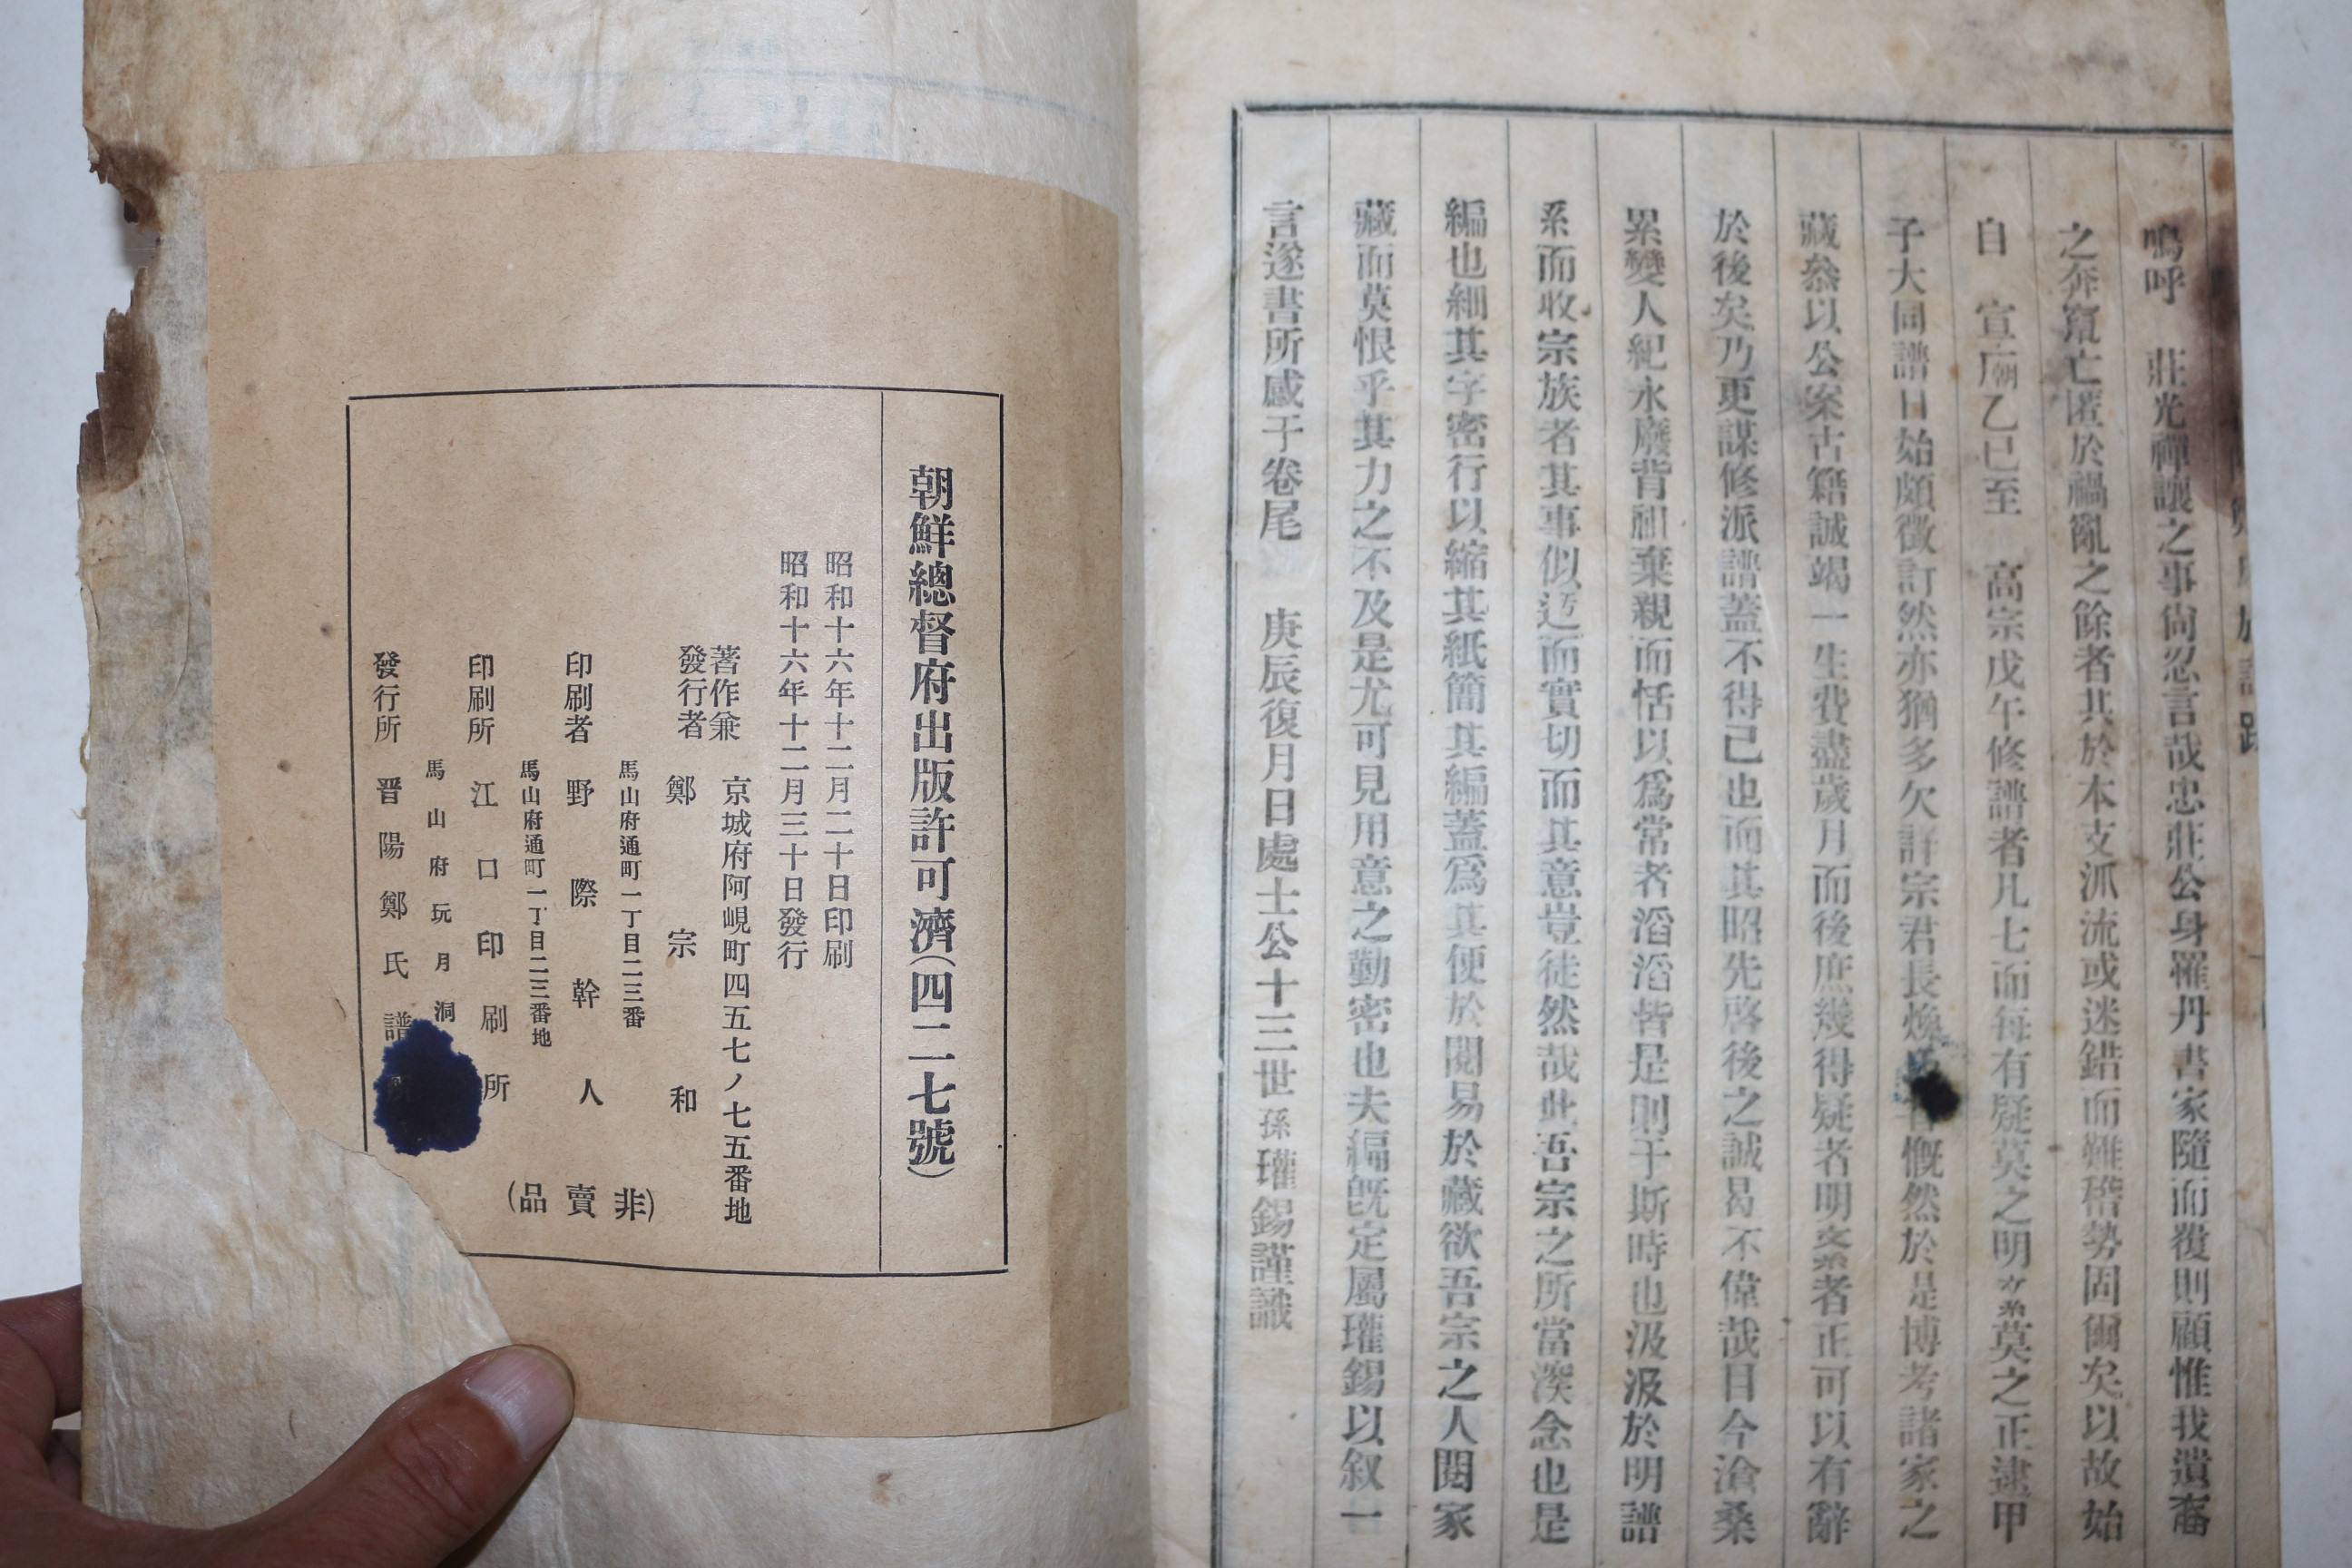 嗚呼 莊光禪讓之事尙忍言哉忠莊公身罹丹書家隨而覆則顧惟我遺裔
之奔竄亡匿於禍亂之餘者其於本支派流或迷錯而難稽勢固爾矣以故始
自 宣廟乙巳至 高宗戊午修譜者凡七而每有疑莫之明紊莫之正逮甲
子大同譜日始頗徵訂然亦猶多欠詳宗君長煥慨然於是博考諸家之
藏叅以公案古籍誠竭一生費盡歲月而後庶幾得疑者明紊者正可以有辭
於後矣乃更謀修派譜蓋不得已也而其昭先啓後之誠曷不偉哉目今滄桑
累變人紀永廢背祖棄親而恬以爲常者滔滔皆是則于斯時也汲汲於明譜
系而收宗族者其事似迂而實切而其意豈徒然哉此吾宗之所當深念也是
編也細其字密行以縮其紙簡其編蓋爲其便於閱易於藏欲吾宗之人閱家
藏而莫恨乎其力之不及是尤可見用意之勤密也夫編旣定屬瓘錫以叙一
言遂書所感于卷尾 庚辰復月日處士公十三世孫瓘錫謹識
朝鮮總督府出版許可濟(四二七號)
昭和十六年十二月二十日印刷
昭和十六年十二月三十日發行
京城府阿峴町四五七ノ七五番地
著作兼發行者 鄭宗和
馬山府通町一丁目二三番
印刷者 野際幹人
馬山府通町一丁目二三番地
印刷所 江口印刷所
馬山府玩月洞
發行所 晋陽鄭氏譜所
(非賣品)